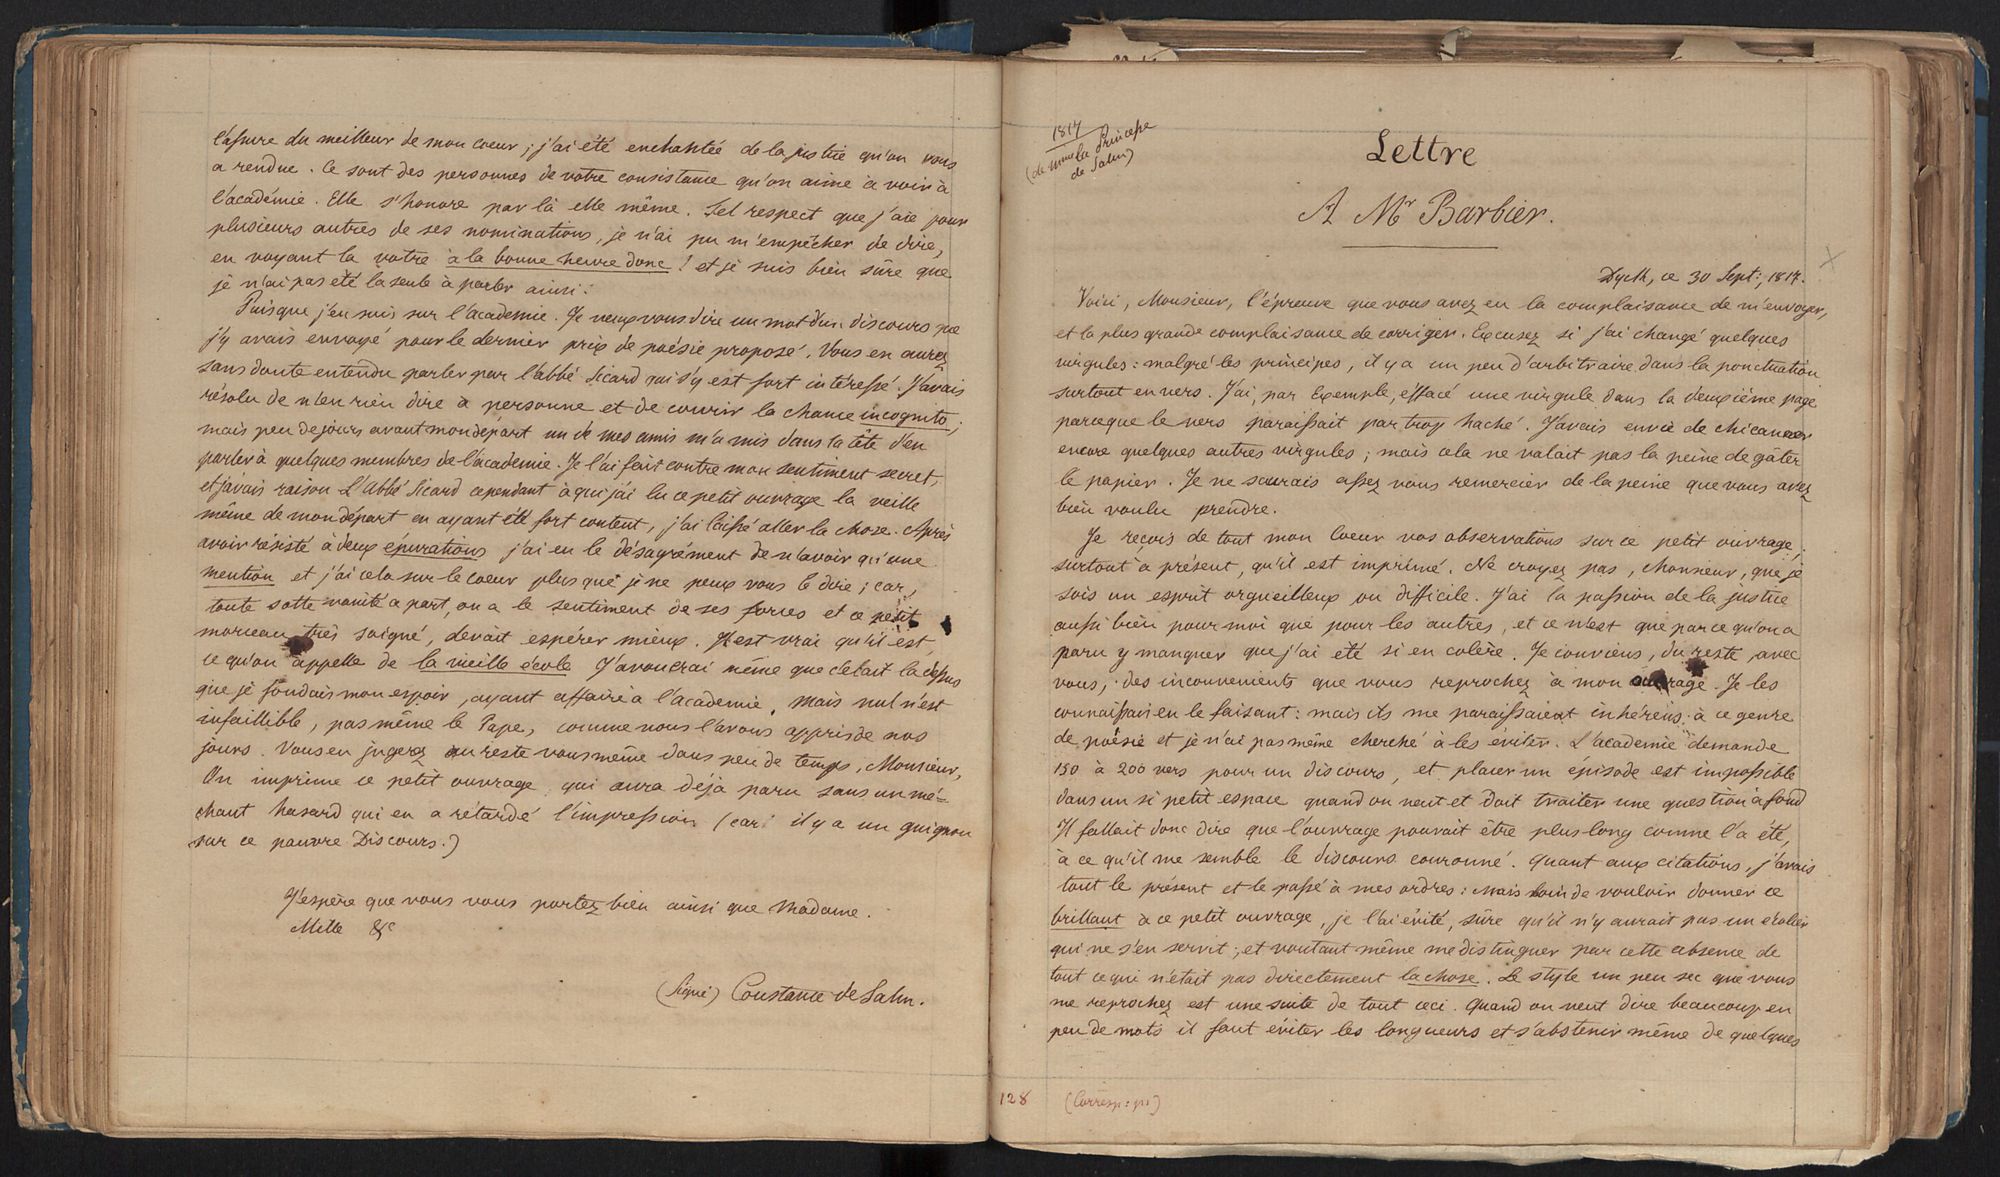 l'assure du meilleur de mon coeur ; j'ai été enchantée de la justice qu'on vous
a rendue. Ce sont des personnes de votre consistance qu'on aime à voir à
l'académie. Elle s'honore par là elle même. Tel respect que j'aie pour
plusieurs autres de ses nominations, je n'ai pu m'empêcher de dire,
en voyant la votre à la bonne heure donc ! et je suis bien sûre que
je n'ai pas été la seule à parler ainsi.
Puisque j'en suis sur l'académie. Je veux vous dire un mot d'un discours que
j'y avais envoyé pour le dernier prix de poésie proposé. Vous en aurez
sans doute entendu parler par l'abbé Sicard qui s'y est fort intéressé. J'avais
résolu de n'en rien dire à personne et de courir la chance incognito ;
mais peu de jours avant mon départ un de mes amis m'a mis dans la tête d'en
parler à quelques membres de l'académie. Je l'ai fait contre mon sentiment secret,
et j'avais raison L'abbé Sicard cependant à qui j'ai lu ce petit ouvrage la veille
même de mon départ en ayant été fort content, j'ai laissé aller la chose. Après
avoir résisté à deux épurations j'ai eu le désagrément de n'avoir qu'une
mention et j'ai cela sur le coeur plus que je ne peux vous le dire ; car,
toute sotte vanité a part, on a le sentiment de ses forces et ce petit
morceau très soigné, devait espérer mieux. Il est vrai qu'il est,
ce qu'on appelle de la vieille école J'avouerai même que c'était la dessus
que je fondais mon espoir, ayant affaire à l'académie. Mais nul n'est
infaillible, pas même le Pape, comme nous l'avons appris de nos
jours. Vous en jugerez au reste vous même dans peu de temps, Monsieur,
On imprime ce petit ouvrage, qui aura déjà paru sans un mé-
chant hasard qui en a retardé l'impression (car il y a un guignon
sur ce pauvre Discours.)
J'espère que vous vous portez bien ainsi que Madame.
Mille &c
(Signé) Constance de Salm.
1817
(de Mme la Princesse
de Salm)
Lettre
A Mr Barbier.
Dyck, ce 30 Sept: 1817.
Voici, Monsieur, l'épreuve que vous avez eu la complaisance de m'envoyer,
et la plus grande complaisance de corriger. Excusez si j'ai changé quelques
virgules : malgré les principes, il y a un peu d'arbitraire dans la ponctuation
surtout en vers. J'ai, par Exemple, effacé une virgule dans la deuxième page
parceque le vers paraissait par trop haché. J'avais envie de chicaner
encore quelques autres virgules ; mais cela ne valait pas la peine de gâter
le papier. Je ne saurais assez vous remercier de la peine que vous avez
bien voulu prendre.
Je reçois de tout mon Coeur vos observations sur ce petit ouvrage,
surtout à présent, qu'il est imprimé. Ne croyez pas, Monsieur, que je
sois un esprit orgueilleux ou difficile. J'ai la passion de la justice
aussi bien pour moi que pour les autres, et ce n'est que parce qu'on a
paru y manquer que j'ai été si en colère. Je conviens, du reste, avec
vous, des inconvenients que vous reprochez à mon ouvrage. Je les
connaissais en le faisant : mais ils me paraissaient inhérens à ce genre
de poésie et je n'ai pas même cherché à les éviter. L'academie demande
150 à 200 vers pour un discours, et placer un épisode est impossible
dans un si petit espace quand on veut et doit traiter une question à fond
Il fallait donc dire que l'ouvrage pouvait être plus long comme l'a été,
à ce qu'il me semble le discours couronné. Quant aux citations, j'avais
tout le présent et le passé à mes ordres : mais loin de vouloir donner ce
brillant à ce petit ouvrage, je l'ai évité, sûre qu'il n'y aurait pas un écolier
qui ne s'en servit ; et voulant même me distinguer par cette absence de
tout ce qui n'était pas directement la chose. Le style un peu sec que vous
me reprochez est une suite de tout ceci. Quand on veut dire beaucoup en
peu de mots il faut éviter les longueurs et s'abstenir même de quelques
128
(Corresp: )